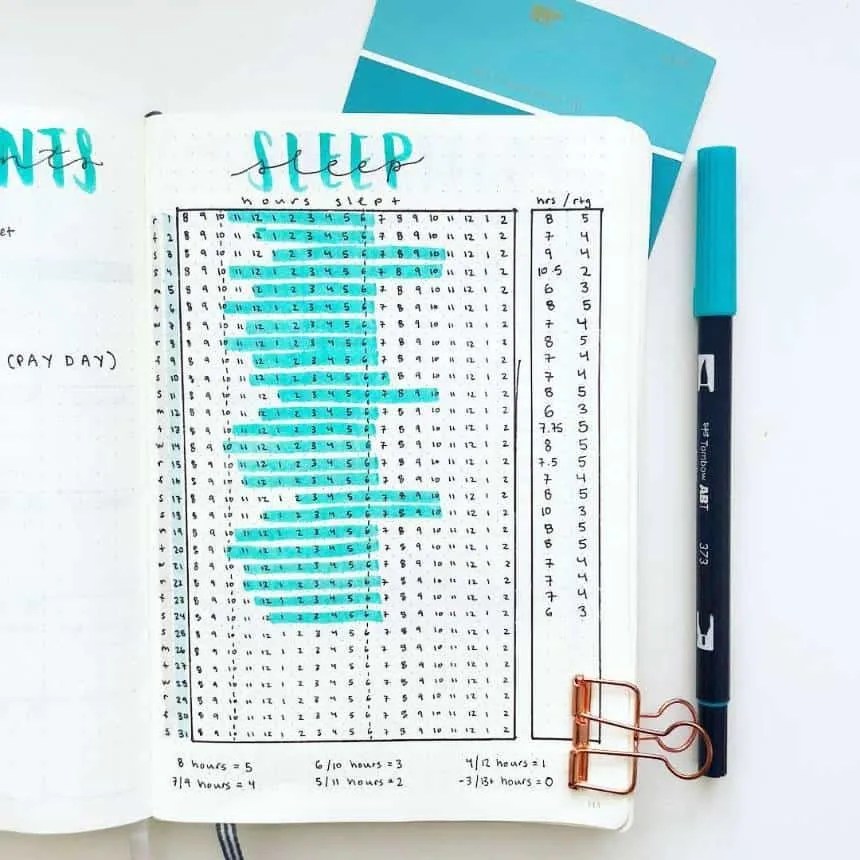 NTS
nts
et
(PAY DAY)
SLEEP
sleep
hours slept hrs/rtg
r 1 8 9 10 11 12 1 2 3 4 5 6 7 8 9 10 11 12 1 2 8 5
f 2 8 9 10 11 12 1 2 3 4 5 6 7 8 9 10 11 12 1 2 7 4
s 3 8 9 10 11 12 1 2 3 4 5 6 7 8 9 10 11 12 1 2 9 4
s 4 8 9 10 11 12 1 2 3 4 5 6 7 8 9 10 11 12 1 2 10.5 2
m 5 8 9 10 11 12 1 2 3 4 5 6 7 8 9 10 11 12 1 2 6 3
t 6 8 9 10 11 12 1 2 3 4 5 6 7 8 9 10 11 12 1 2 8 5
w 7 8 9 10 11 12 1 2 3 4 5 6 7 8 9 10 11 12 1 2 7 4
r 8 8 9 10 11 12 1 2 3 4 5 6 7 8 9 10 11 12 1 2 8 5
f 9 8 9 10 11 12 1 2 3 4 5 6 7 8 9 10 11 12 1 2 7 4
s 10 8 9 10 11 12 1 2 3 4 5 6 7 8 9 10 11 12 1 2 7 4
s 11 8 9 10 11 12 1 2 3 4 5 6 7 8 9 10 11 12 1 2 8 5
m 12 8 9 10 11 12 1 2 3 4 5 6 7 8 9 10 11 12 1 2 6 3
t 13 8 9 10 11 12 1 2 3 4 5 6 7 8 9 10 11 12 1 2 7.75 5
w 14 8 9 10 11 12 1 2 3 4 5 6 7 8 9 10 11 12 1 2 8 5
r 15 8 9 10 11 12 1 2 3 4 5 6 7 8 9 10 11 12 1 2 7.5 5
f 16 8 9 10 11 12 1 2 3 4 5 6 7 8 9 10 11 12 1 2 7 4
s 17 8 9 10 11 12 1 2 3 4 5 6 7 8 9 10 11 12 1 2 8 5
s 18 8 9 10 11 12 1 2 3 4 5 6 7 8 9 10 11 12 1 2 10 3
m 19 8 9 10 11 12 1 2 3 4 5 6 7 8 9 10 11 12 1 2 8 5
t 20 8 9 10 11 12 1 2 3 4 5 6 7 8 9 10 11 12 1 2 8 5
w 21 8 9 10 11 12 1 2 3 4 5 6 7 8 9 10 11 12 1 2 7 4
r 22 8 9 10 11 12 1 2 3 4 5 6 7 8 9 10 11 12 1 2 7 4
f 23 8 9 10 11 12 1 2 3 4 5 6 7 8 9 10 11 12 1 2 7 4
s 24 8 9 10 11 12 1 2 3 4 5 6 7 8 9 10 11 12 1 2 6 3
s 25 8 9 10 11 12 1 2 3 4 5 6 7 8 9 10 11 12 1 2
m 26 8 9 10 11 12 1 2 3 4 5 6 7 8 9 10 11 12 1 2
t 27 8 9 10 11 12 1 2 3 4 5 6 7 8 9 10 11 12 1 2
w 28 8 9 10 11 12 1 2 3 4 5 6 7 8 9 10 11 12 1 2
r 29 8 9 10 11 12 1 2 3 4 5 6 7 8 9 10 11 12 1 2
f 30 8 9 10 11 12 1 2 3 4 5 6 7 8 9 10 11 12 1 2
s 31 8 9 10 11 12 1 2 3 4 5 6 7 8 9 10 11 12 1 2
8 hours = 5 6/10 hours = 3 4/12 hours = 1
7/9 hours = 4 5/11 hours = 2 -3/13+ hours = 0
Tombow ABT 373